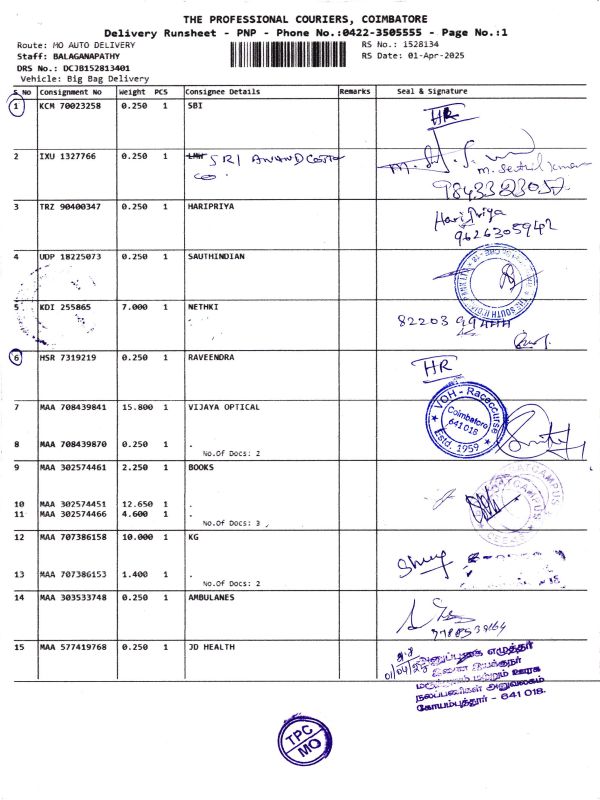 THE PROFESSIONAL COURIERS, COIMBATORE
Delivery Runsheet - PNP - Phone No.:0422-3505555 - Page No.:1
Route: MO AUTO DELIVERY
RS No.: 1528134
Staff: BALAGANAPATHY
RS Date: 01-Apr-2025
DRS No.: DCJB152813401
Vehicle: Big Bag Delivery
S No Consignment No Weight PCS Consignee Details Remarks Seal & Signature
1 KCM 70023258 0.250 1 SBI HR
2 IXU 1327766 0.250 1 SRI ANAND
co.
3 TRZ 90400347 0.250 1 HARIPRIYA Haripriya
9626305942
4 UDP 18225073 0.250 1 SAUTHINDIAN
5 KDI 255865 7.000 1 NETHKI 82203
6 HSR 7319219 0.250 1 RAVEENDRA HR
7 MAA 708439841 15.800 1 VIJAYA OPTICAL
VOH - Racecourse
Coimbatore
641 018
Estd. 1959
8 MAA 708439870 0.250 1 .
No.Of Docs: 2
9 MAA 302574461 2.250 1 BOOKS
10 MAA 302574451 12.650 1 .
11 MAA 302574466 4.600 1 .
No.Of Docs: 3
12 MAA 707386158 10.000 1 KG
13 MAA 707386153 1.400 1 .
No.Of Docs: 2
14 MAA 303533748 0.250 1 AMBULANES
15 MAA 577419768 0.250 1 JD HEALTH
எழுத்தர்
01/04/25 இணை இயக்குநர்
மருத்துவம் மற்றும் ஊரக
நலப்பணிகள் அலுவலகம்
கோயம்புத்தூர் - 641 018.
TPC
MO